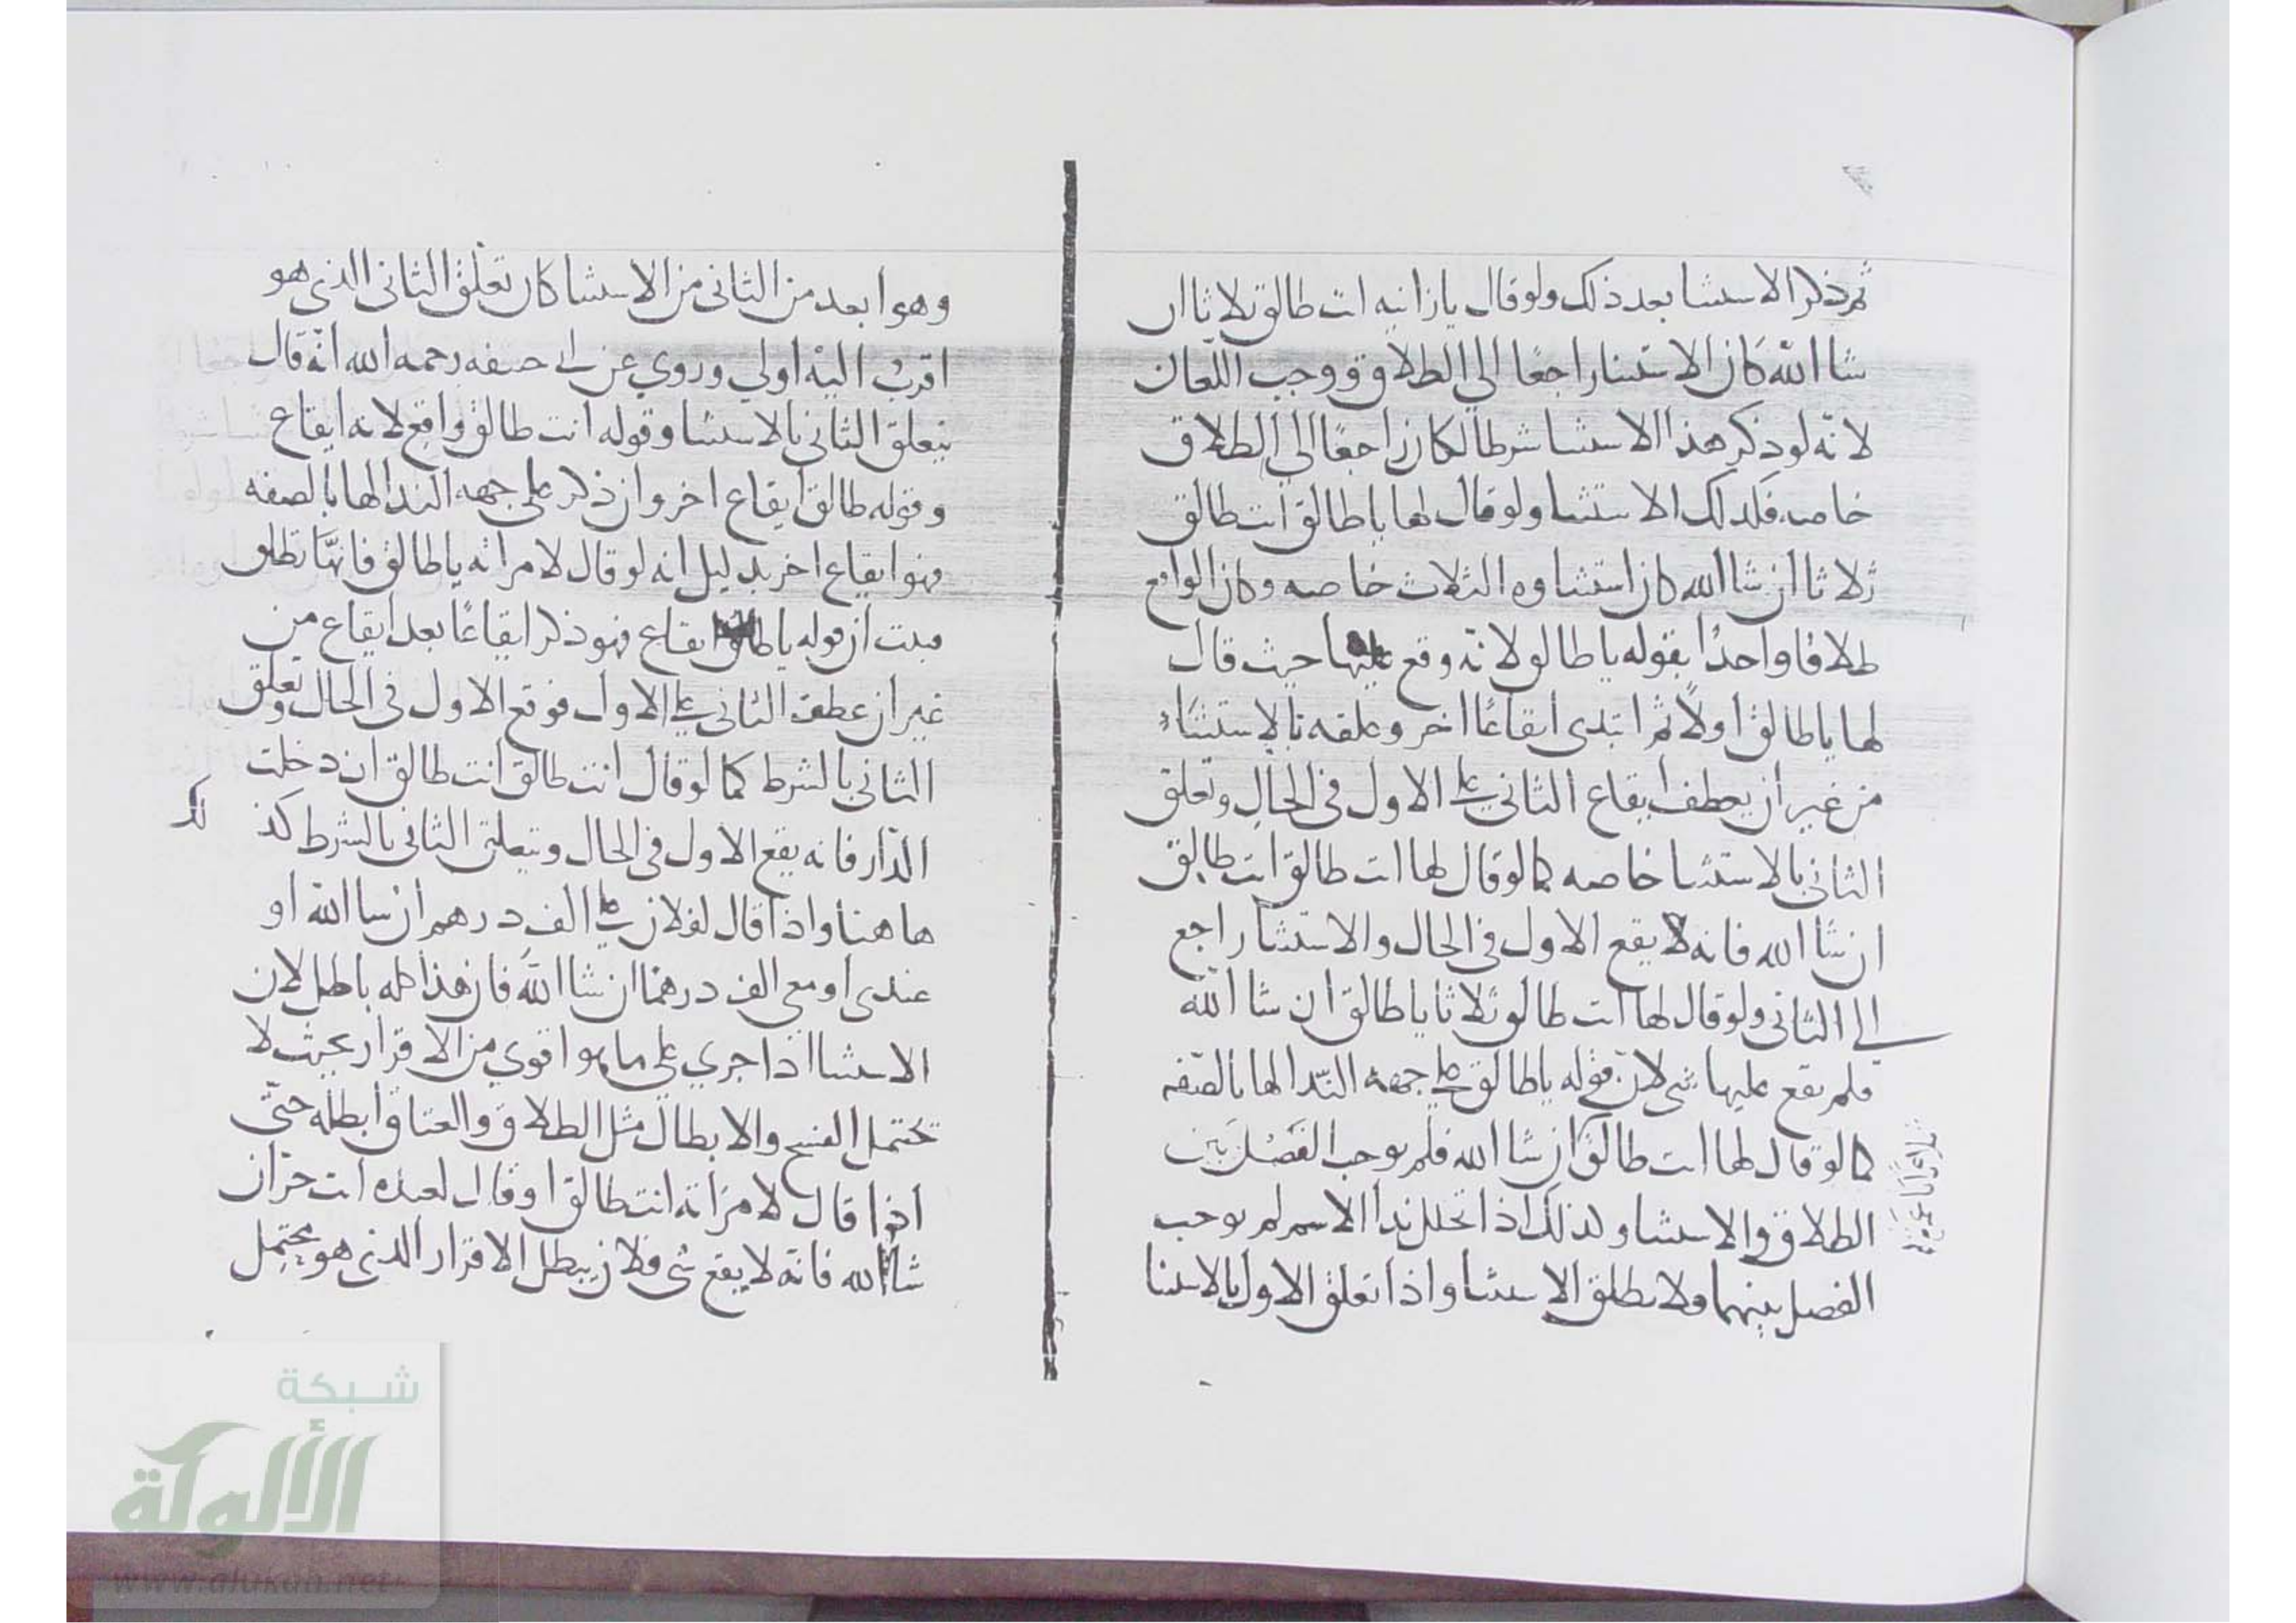 ثم ذكر الاستثنا بعد ذلك ولو قال يا زانيه انت طالق ثلاثا ان
شا الله كان الاستثنا راجعًا الي الطلاق ووجب اللعان
لانّه لو ذكر هذا الاستثنا شرطا لكان راجعًا الي الطلاق
خاصه فكذلك الاستثنا ولو قال لها يا طالق انت طالق
ثلاثا ان شا الله كان استثناوه الثلاث خاصه وكان الواقع
طلاقا واحدًا بقوله يا طالق لانّه وقع عليها حيث قال
لها يا طالق اولاً ثم ابتدى ايقاعًا اخر وعلقه بالاستثناء
من غير ان يعطف ايقاع الثاني على الاول في الحال وتعلق
الثاني بالاستثنا خاصه كما لو قال لها انت طالق انت طالق
ان شا الله فانه لا يقع الاول في الحال والاستثنا راجع
الي الثاني ولو قال لها انت طالق ثلاثا يا طالق ان شا الله
فلم يقع عليها شي لان قوله يا طالق علي جهة الندا لها بالصفه
كما لو قال لها انت طالق ان شا الله فلم يوجب الفَصْل بين
الطلاق والاستثنا وكذلك اذا تخلل ندا الاسم لم يوجب
الفصل بينهما ولا يطلق الاستثنا واذا تعلق الاول بالاستثنا
وهو ابعد من الثاني من الاستثنا كان تعلّق الثاني الذي هو
اقربُ اليه اولي وروي عن ابي حنيفه رحمه الله انّه قال
يتعلق الثاني بالاستثنا وقوله انت طالق واقع لانه ايقاع
وقوله طالق ايقاع اخر وان ذكر علي جهه الندا لها بالصفه
فهو ايقاع اخر بدليل انه لو قال لامراته يا طالق فانهّا تطلق
فثبت ان قوله يا طالق ايقاع فهو ذكر ايقاعًا بعد ايقاع من
غير ان عطف الثاني على الاول فوقع الاول في الحال وتعلق
الثاني بالشرط كما لو قال انت طالق انت طالق ان دخلت
الدّار فانه يقع الاول في الحال ويتعلق الثاني بالشرط كذ لك
هاهنا واذا قال لفلان علي الف درهم ان شا الله او
عندي او معي الف درهم ان شا الله فان هذا كله باطل لان
الاستثنا اذا جري علي ما هو اقوي من الاقرار بحيث لا
تحتمل الفسخ والابطال مثل الطلاق والعتاق ابطله حتّي
اذا قال لامرَاته انت طالق او قال لعبده انت حرّ ان
شا الله فانّه لا يقع شي فلان يبطل الاقرار الذي هو يحتمل
شبكة
الألوكة
www.alukah.net